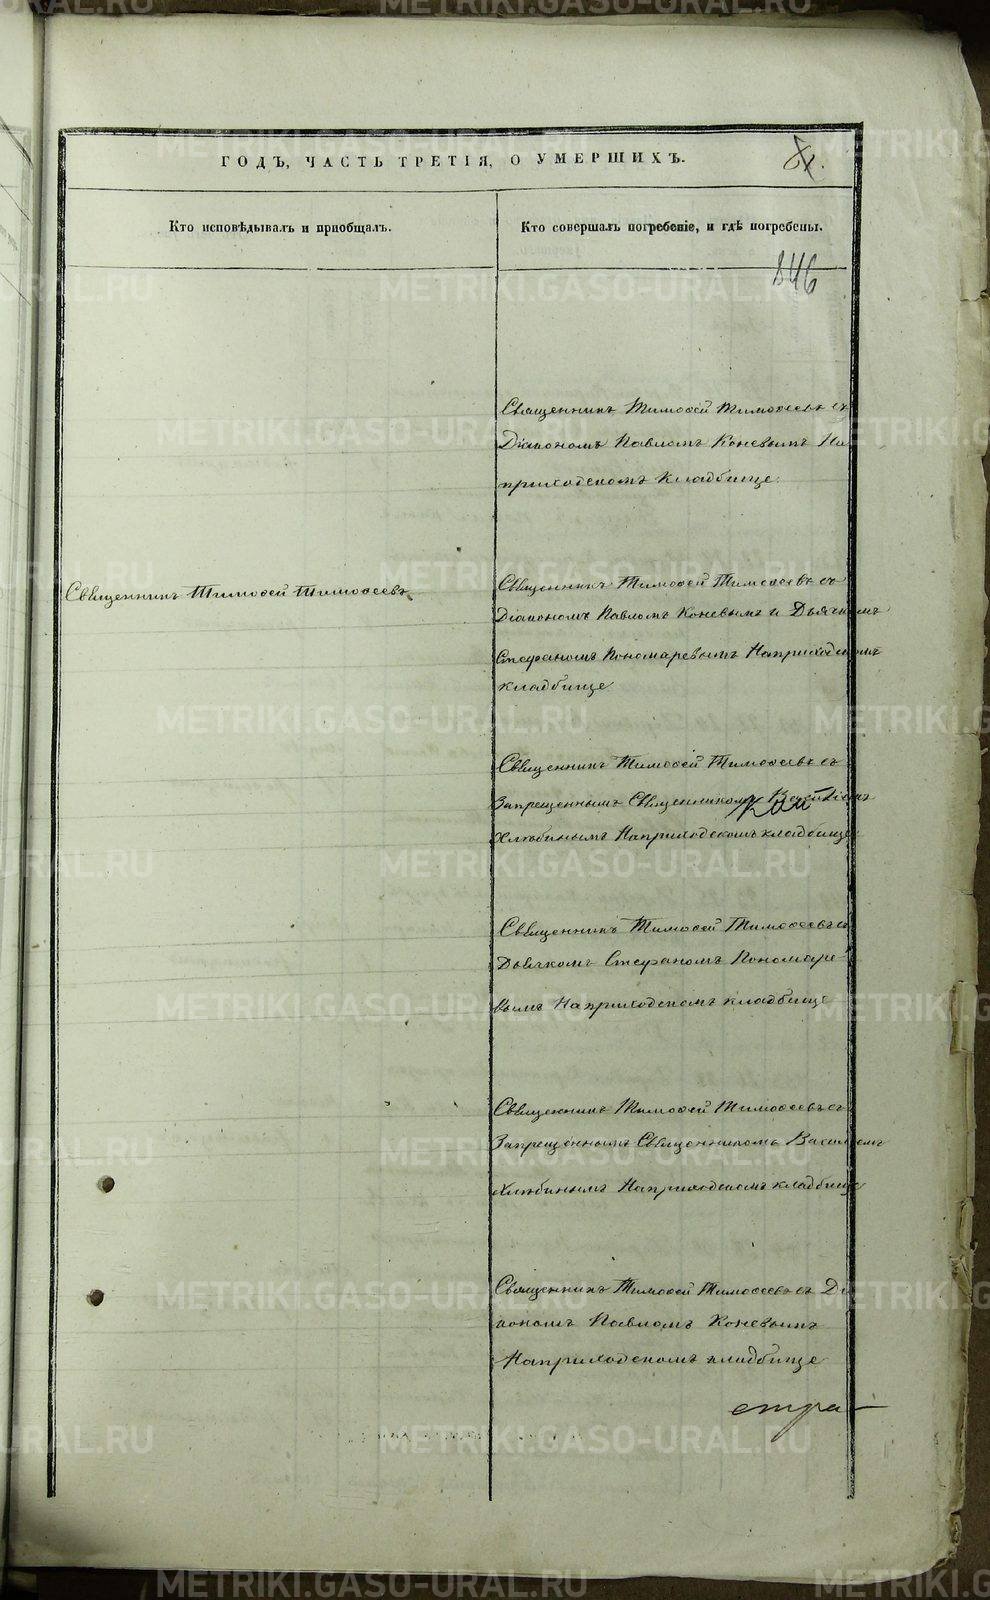 ГОДЪ, ЧАСТЬ ТРЕТІЯ, О УМЕРШИХЪ.
Кто исповѣдывалъ и приобщалъ.
Кто совершалъ погребеніе, и гдѣ погребены.
846
Священникъ Тимоѳей Тимоѳеевъ съ
Діакономъ Павломъ Коневымъ На
приходскомъ кладбище.
Священникъ Тимоѳей Тимоѳеевъ
Священникъ Тимоѳей Тимоѳеевъ съ
Діакономъ Павломъ Коневымъ и Дьячкомъ
Стефаномъ Пономаревымъ На приходскомъ
кладбище
Священникъ Тимоѳей Тимоѳеевъ съ
Запрещеннымъ Священникомъ Василіемъ
Хлюбинымъ На приходскомъ кладбище
Священникъ Тимоѳей Тимоѳеевъ съ
Дьячкомъ Стефаномъ Пономаре
вымъ На приходскомъ кладбище
Священникъ Тимоѳей Тимоѳеевъ съ
Запрещеннымъ Священникомъ Василіемъ
Хлюбинымъ На приходскомъ кладбище
Священникъ Тимоѳей Тимоѳеевъ съ Діа
кономъ Павломъ Коневымъ
На приходскомъ кладбище
METRIKI.GASO-URAL.RU